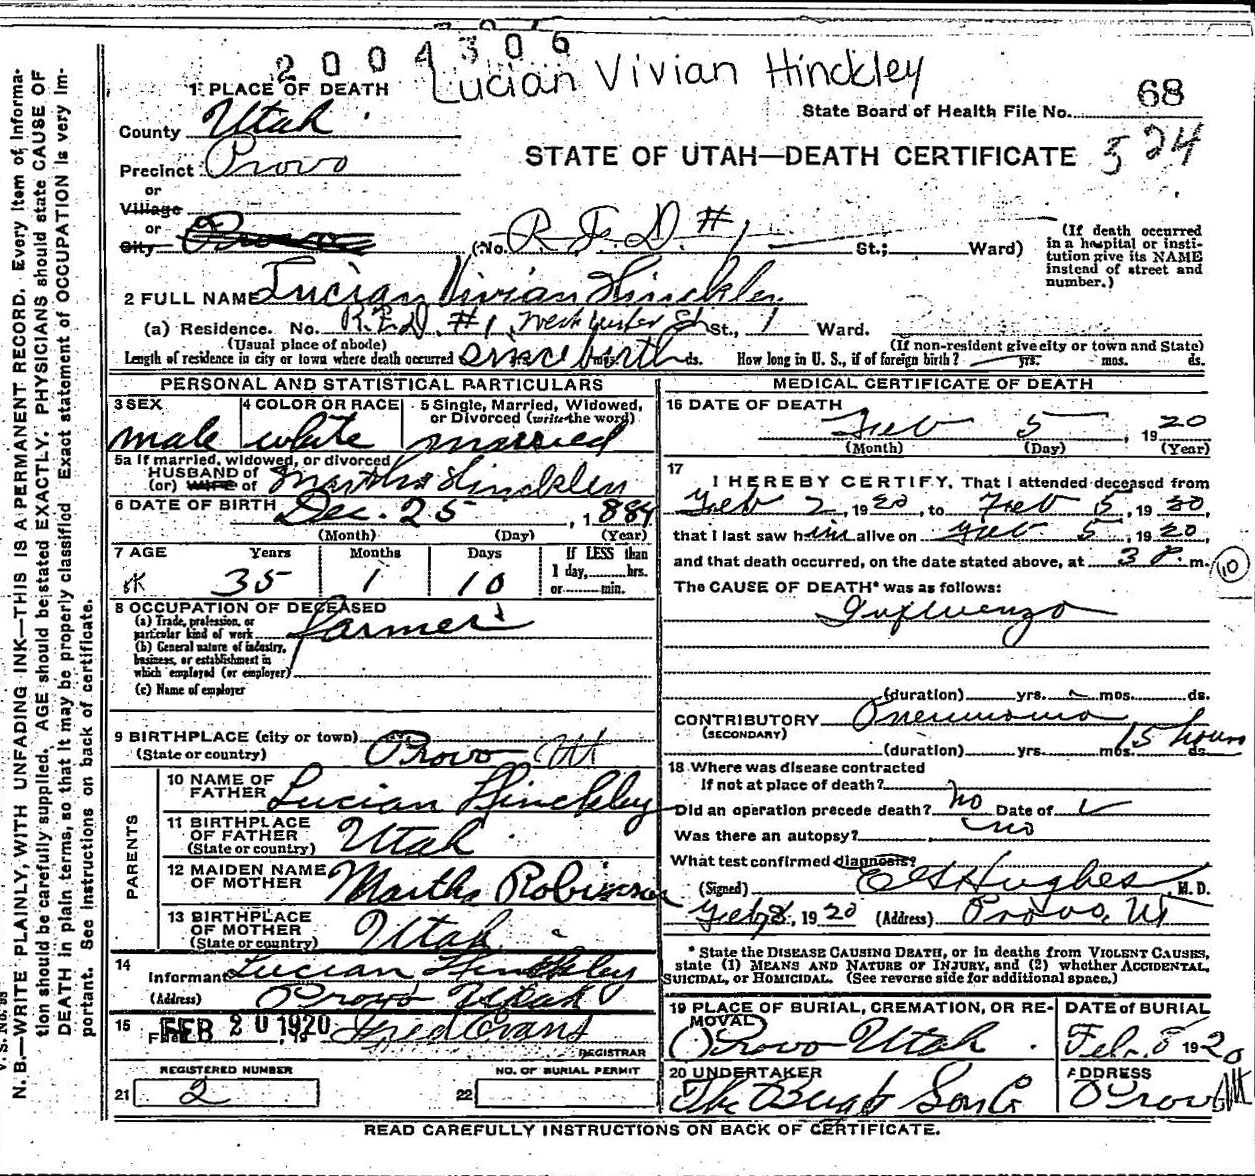 2004306
Lucian Vivian Hinckley
1 PLACE OF DEATH
State Board of Health File No. 68
County Utah
524
STATE OF UTAH—DEATH CERTIFICATE
Precinct Provo
or
Village
or
City Provo
(No. R.F.D. #1 St.; Ward)
(If death occurred
in a hospital or insti-
tution give its NAME
instead of street and
number.)
2 FULL NAME Lucian Vivian Hinckley
(a) Residence. No. R.F.D. #1, St., 1 Ward.
(Usual place of abode)
(If non-resident give city or town and State)
Length of residence in city or town where death occurred since birth mos. ds. How long in U. S., if of foreign birth? yrs. mos. ds.
PERSONAL AND STATISTICAL PARTICULARS
3 SEX
male
4 COLOR OR RACE
white
5 Single, Married, Widowed,
or Divorced (write the word)
married
5a If married, widowed, or divorced
HUSBAND of
(or) WIFE of Martha Hinckley
6 DATE OF BIRTH Dec. 25, 1884
(Month) (Day) (Year)
7 AGE Years Months Days
If LESS than
1 day, hrs.
or min.
35 1 10
8 OCCUPATION OF DECEASED
(a) Trade, profession, or
particular kind of work farmer
(b) General nature of industry,
business, or establishment in
which employed (or employer)
(c) Name of employer
9 BIRTHPLACE (city or town) Provo Ut
(State or country)
PARENTS
10 NAME OF
FATHER Lucian Hinckley
11 BIRTHPLACE
OF FATHER
(State or country) Utah
12 MAIDEN NAME
OF MOTHER Martha Robinson
13 BIRTHPLACE
OF MOTHER
(State or country) Utah
14
Informant Lucian Hinckley
(Address) Provo Utah
15
Filed FEB 20 1920, 19 Fred Evans
REGISTRAR
REGISTERED NUMBER
21 2
NO. OF BURIAL PERMIT
22
MEDICAL CERTIFICATE OF DEATH
16 DATE OF DEATH
Feb 5, 1920
(Month) (Day) (Year)
17
I HEREBY CERTIFY, That I attended deceased from
Feb 2, 1920, to Feb 5, 1920,
that I last saw him alive on Feb 5, 1920,
and that death occurred, on the date stated above, at 3 P. m.
10
The CAUSE OF DEATH* was as follows:
Influenza
(duration) yrs. mos. ds.
CONTRIBUTORY Pneumonia
(SECONDARY)
15 hours
(duration) yrs. mos. ds.
18 Where was disease contracted
If not at place of death?
Did an operation precede death? no Date of
Was there an autopsy? no
What test confirmed diagnosis?
(Signed) Hughes, M. D.
Feb 8, 1920 (Address) Provo, Ut
* State the DISEASE CAUSING DEATH, or in deaths from VIOLENT CAUSES,
state (1) MEANS AND NATURE OF INJURY, and (2) whether ACCIDENTAL,
SUICIDAL, or HOMICIDAL. (See reverse side for additional space.)
19 PLACE OF BURIAL, CREMATION, OR RE-
MOVAL
Provo Utah
DATE OF BURIAL
Feb. 8 1920
20 UNDERTAKER
The Sons Co
ADDRESS
Provo Ut
READ CAREFULLY INSTRUCTIONS ON BACK OF CERTIFICATE.
V. S. No. 95
N. B.—WRITE PLAINLY, WITH UNFADING INK—THIS IS A PERMANENT RECORD. Every item of informa-
tion should be carefully supplied. AGE should be stated EXACTLY. PHYSICIANS should state CAUSE OF
DEATH in plain terms, so that it may be properly classified. Exact statement of OCCUPATION is very im-
portant. See instructions on back of certificate.